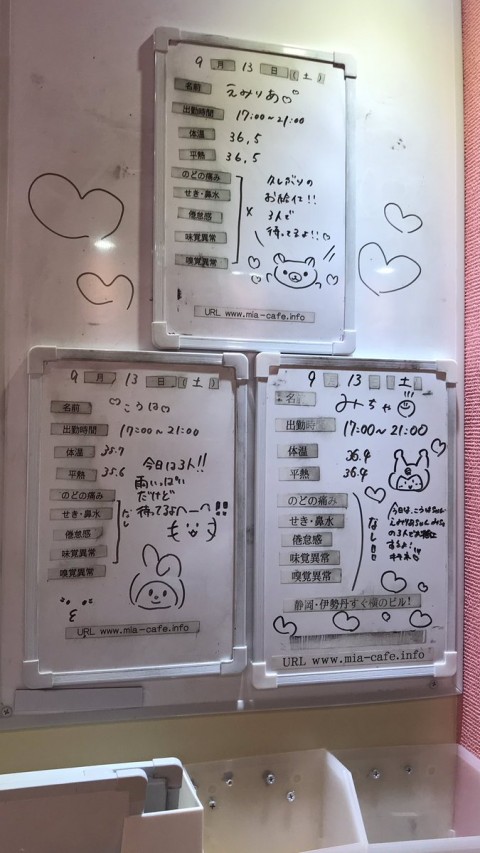 9 月 13 日 (土)
名前 えみりあ♡
出勤時間 17:00~21:00
体温 36.5
平熱 36.5
のどの痛み
せき・鼻水
倦怠感
味覚異常
嗅覚異常
×
久しぶりの
お給仕!!
3人で
待ってるよ!!♡
URL www.mia-cafe.info
9 月 13 日 (土)
名前 ♡こうは♡
出勤時間 17:00~21:00
体温 35.7
平熱 35.6
のどの痛み
せき・鼻水
倦怠感
味覚異常
嗅覚異常
なし
今日は3人!!
雨いっぱい
だけど
待ってるよ〜〜!!
URL www.mia-cafe.info
9 13 土
名 みちゃ
出勤時 17:00~21:00
体温 36.4
平熱 36.4
のどの痛み
せき・鼻水
倦怠感
味覚異常
嗅覚異常
なし
今日は、こうはちゃん
えみりあちゃん みちゃ
の3人でお給仕
するよ!
静岡・伊勢丹すぐ横のビル!
URL www.mia-cafe.info